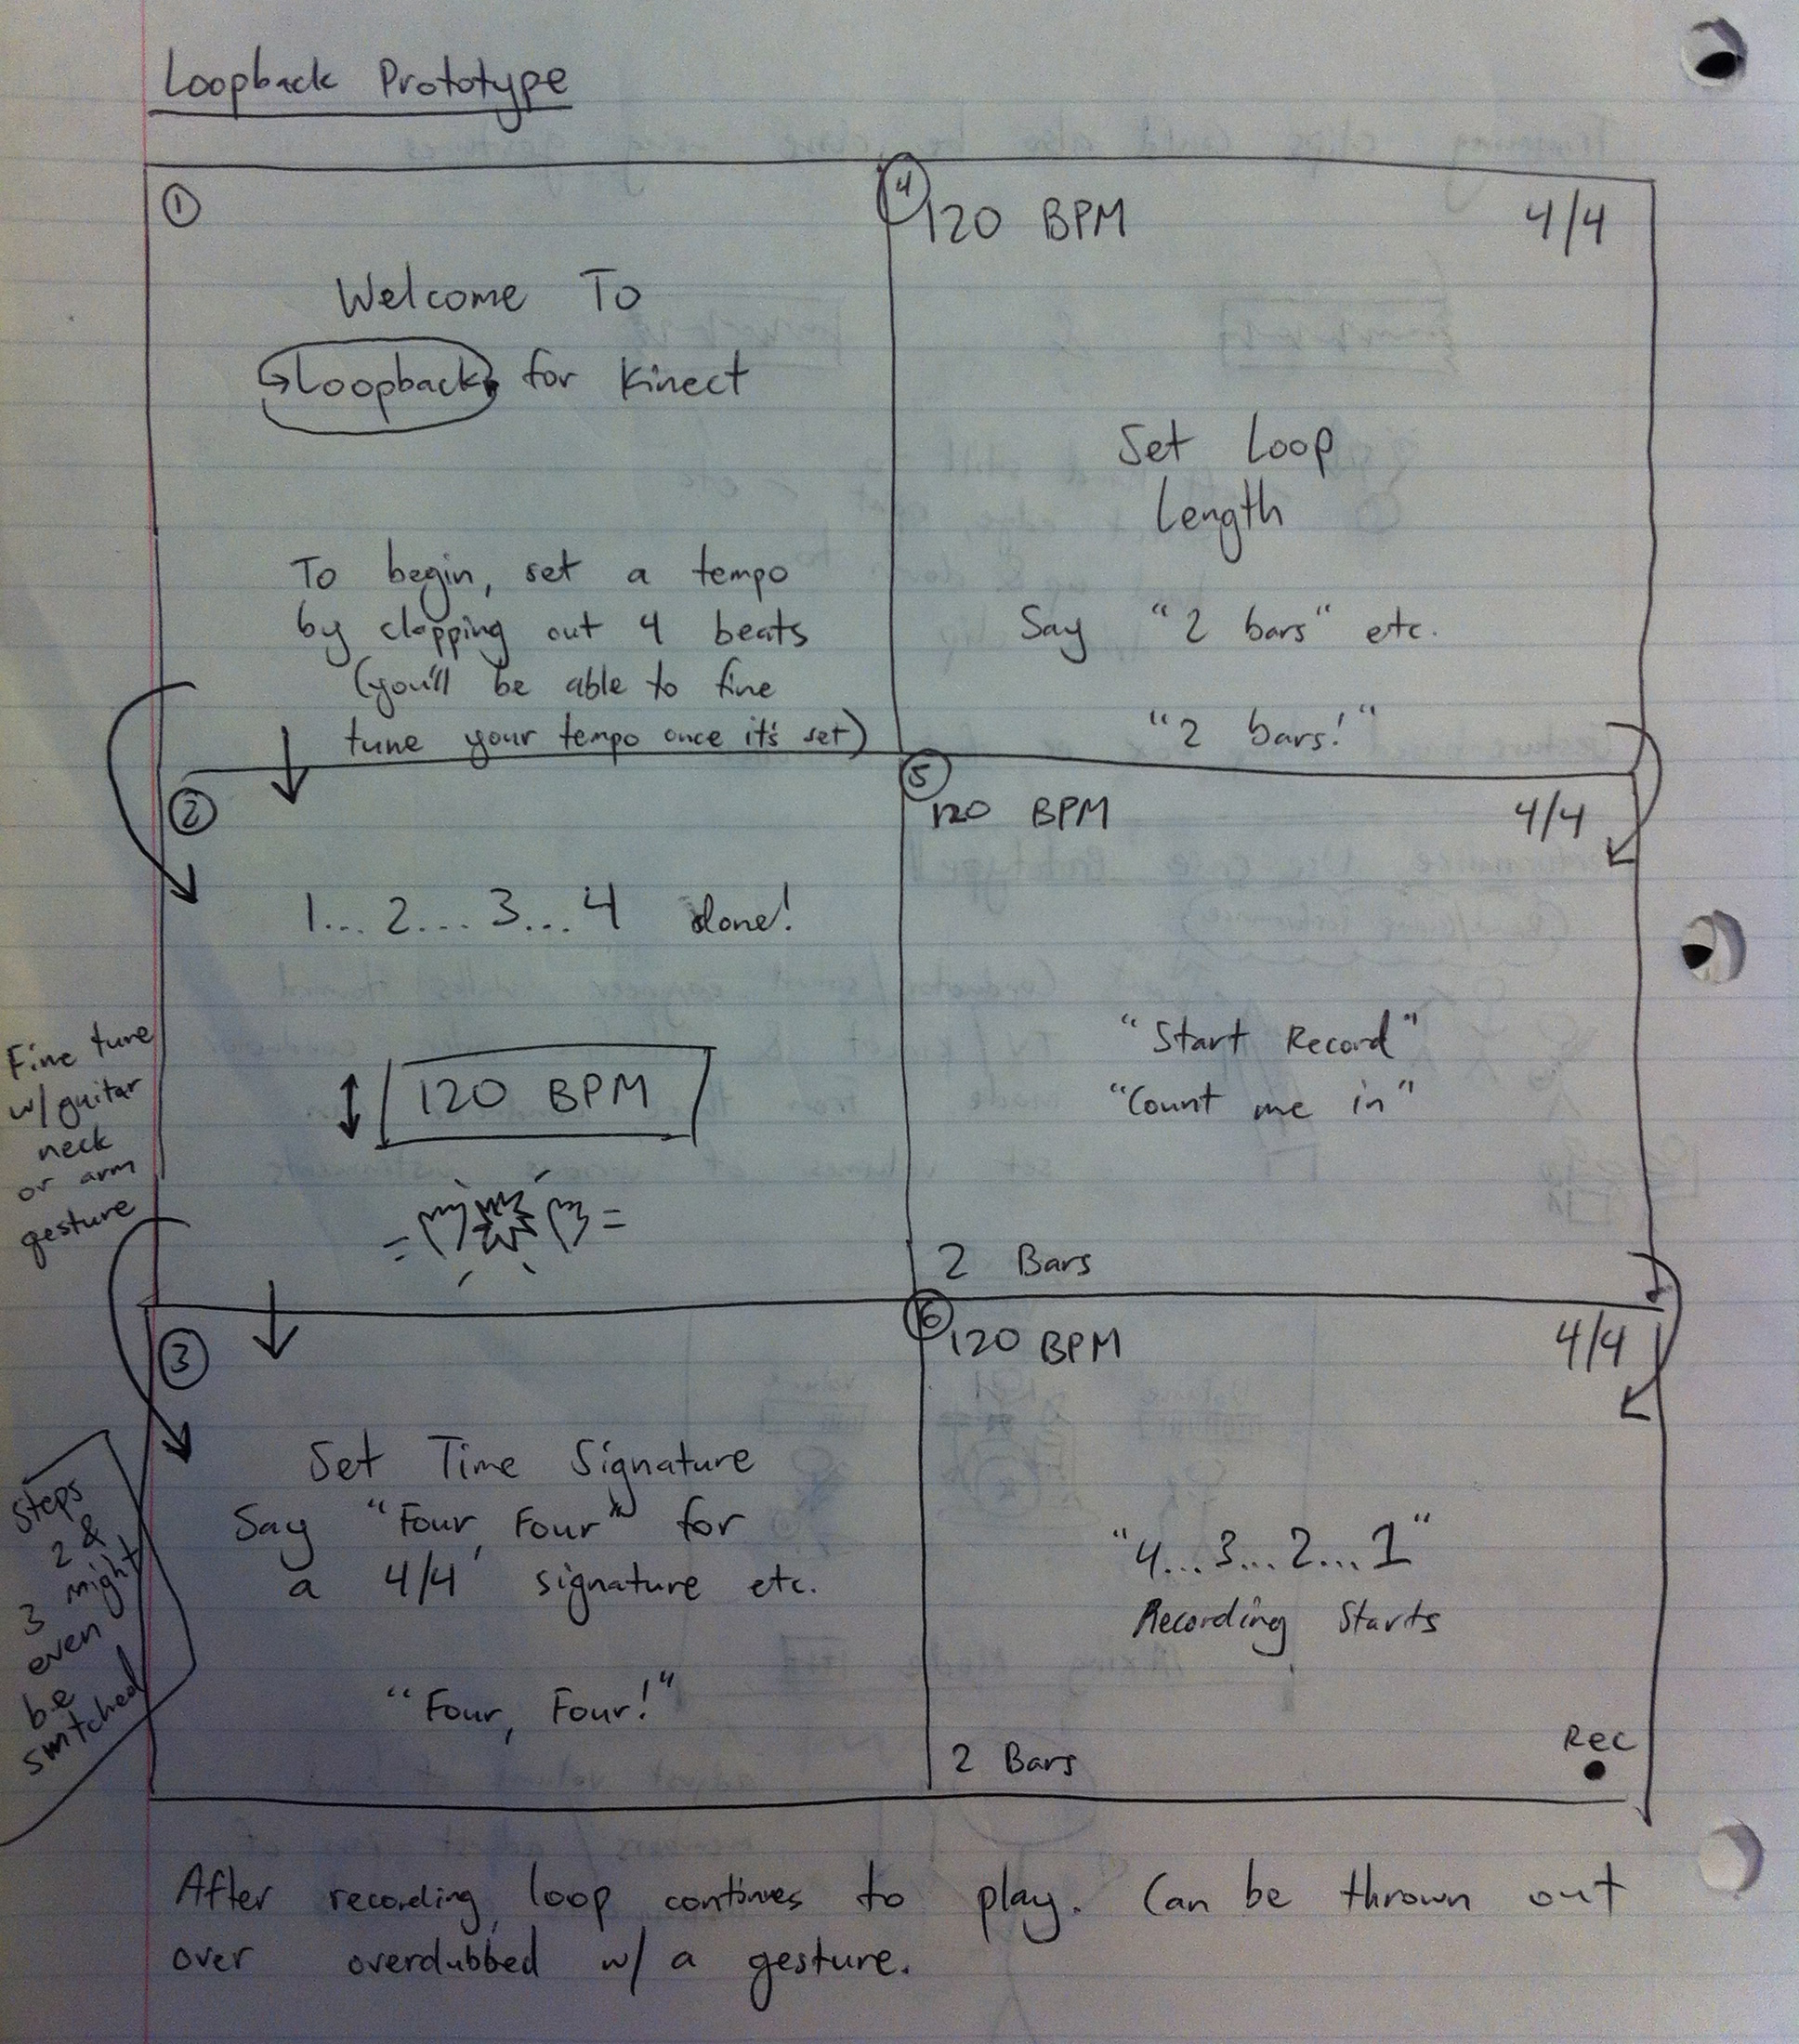 Loopback Prototype
1
Welcome To
Loopback for Kinect
To begin, set a tempo
by clapping out 4 beats
(you'll be able to fine
tune your tempo once it's set)
2
1... 2... 3... 4 done!
120 BPM
Fine tune
w/ guitar
neck
or arm
gesture
3
Set Time Signature
Say "Four, Four" for
a 4/4 signature etc.
"Four, Four!"
Steps
2 &
3 might
even
be
switched
4
120 BPM 4/4
Set Loop
Length
Say "2 bars" etc.
"2 bars!"
5
120 BPM 4/4
"Start Record"
"Count me in"
2 Bars
6
120 BPM 4/4
"4... 3... 2... 1"
Recording Starts
Rec
2 Bars
After recording, loop continues to play. Can be thrown out
over overdubbed w/ a gesture.